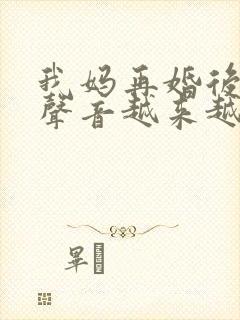 我妈再婚後
聲音越来越
畢